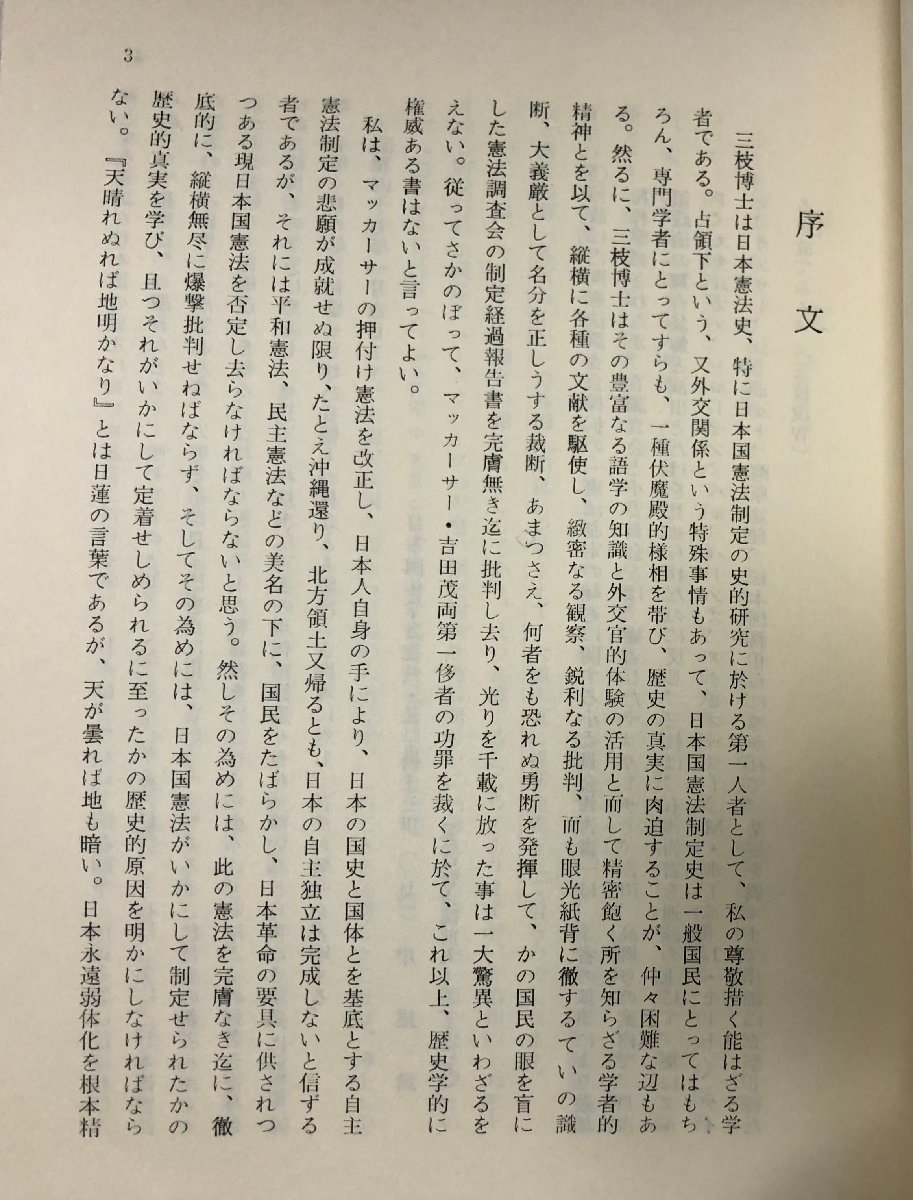 序文
三枝博士は日本憲法史、特に日本国憲法制定の史的研究に於ける第一人者として、私の尊敬措く能はざる学
者である。占領下という、又外交関係という特殊事情もあって、日本国憲法制定史は一般国民にとってはもち
ろん、専門学者にとってすらも、一種伏魔殿的様相を帯び、歴史の真実に肉迫することが、仲々困難な辺もあ
る。然るに、三枝博士はその豊富なる語学の知識と外交官的体験の活用と而して精密飽く所を知らざる学者的
精神とを以て、縦横に各種の文献を駆使し、緻密なる観察、鋭利なる批判、而も眼光紙背に徹するていの識
断、大義厳として名分を正しうする裁断、あまつさえ、何者をも恐れぬ勇断を発揮して、かの国民の眼を盲に
した憲法調査会の制定経過報告書を完膚無き迄に批判し去り、光りを千載に放った事は一大驚異といわざるを
えない。従ってさかのぼって、マッカーサー・吉田茂両第一侈者の功罪を裁くに於て、これ以上、歴史学的に
権威ある書はないと言ってよい。
私は、マッカーサーの押付け憲法を改正し、日本人自身の手により、日本の国史と国体とを基底とする自主
憲法制定の悲願が成就せぬ限り、たとえ沖縄還り、北方領土又帰るとも、日本の自主独立は完成しないと信ずる
者であるが、それには平和憲法、民主憲法などの美名の下に、国民をたばらかし、日本革命の要具に供されつ
つある現日本国憲法を否定し去らなければならないと思う。然しその為めには、此の憲法を完膚なき迄に、徹
底的に、縦横無尽に爆撃批判せねばならず、そしてその為めには、日本国憲法がいかにして制定せられたかの
歴史的真実を学び、且つそれがいかにして定着せしめられるに至ったかの歴史的原因を明かにしなければなら
ない。『天晴れぬれば地明かなり』とは日蓮の言葉であるが、天が曇れば地も暗い。日本永遠弱体化を根本精
3